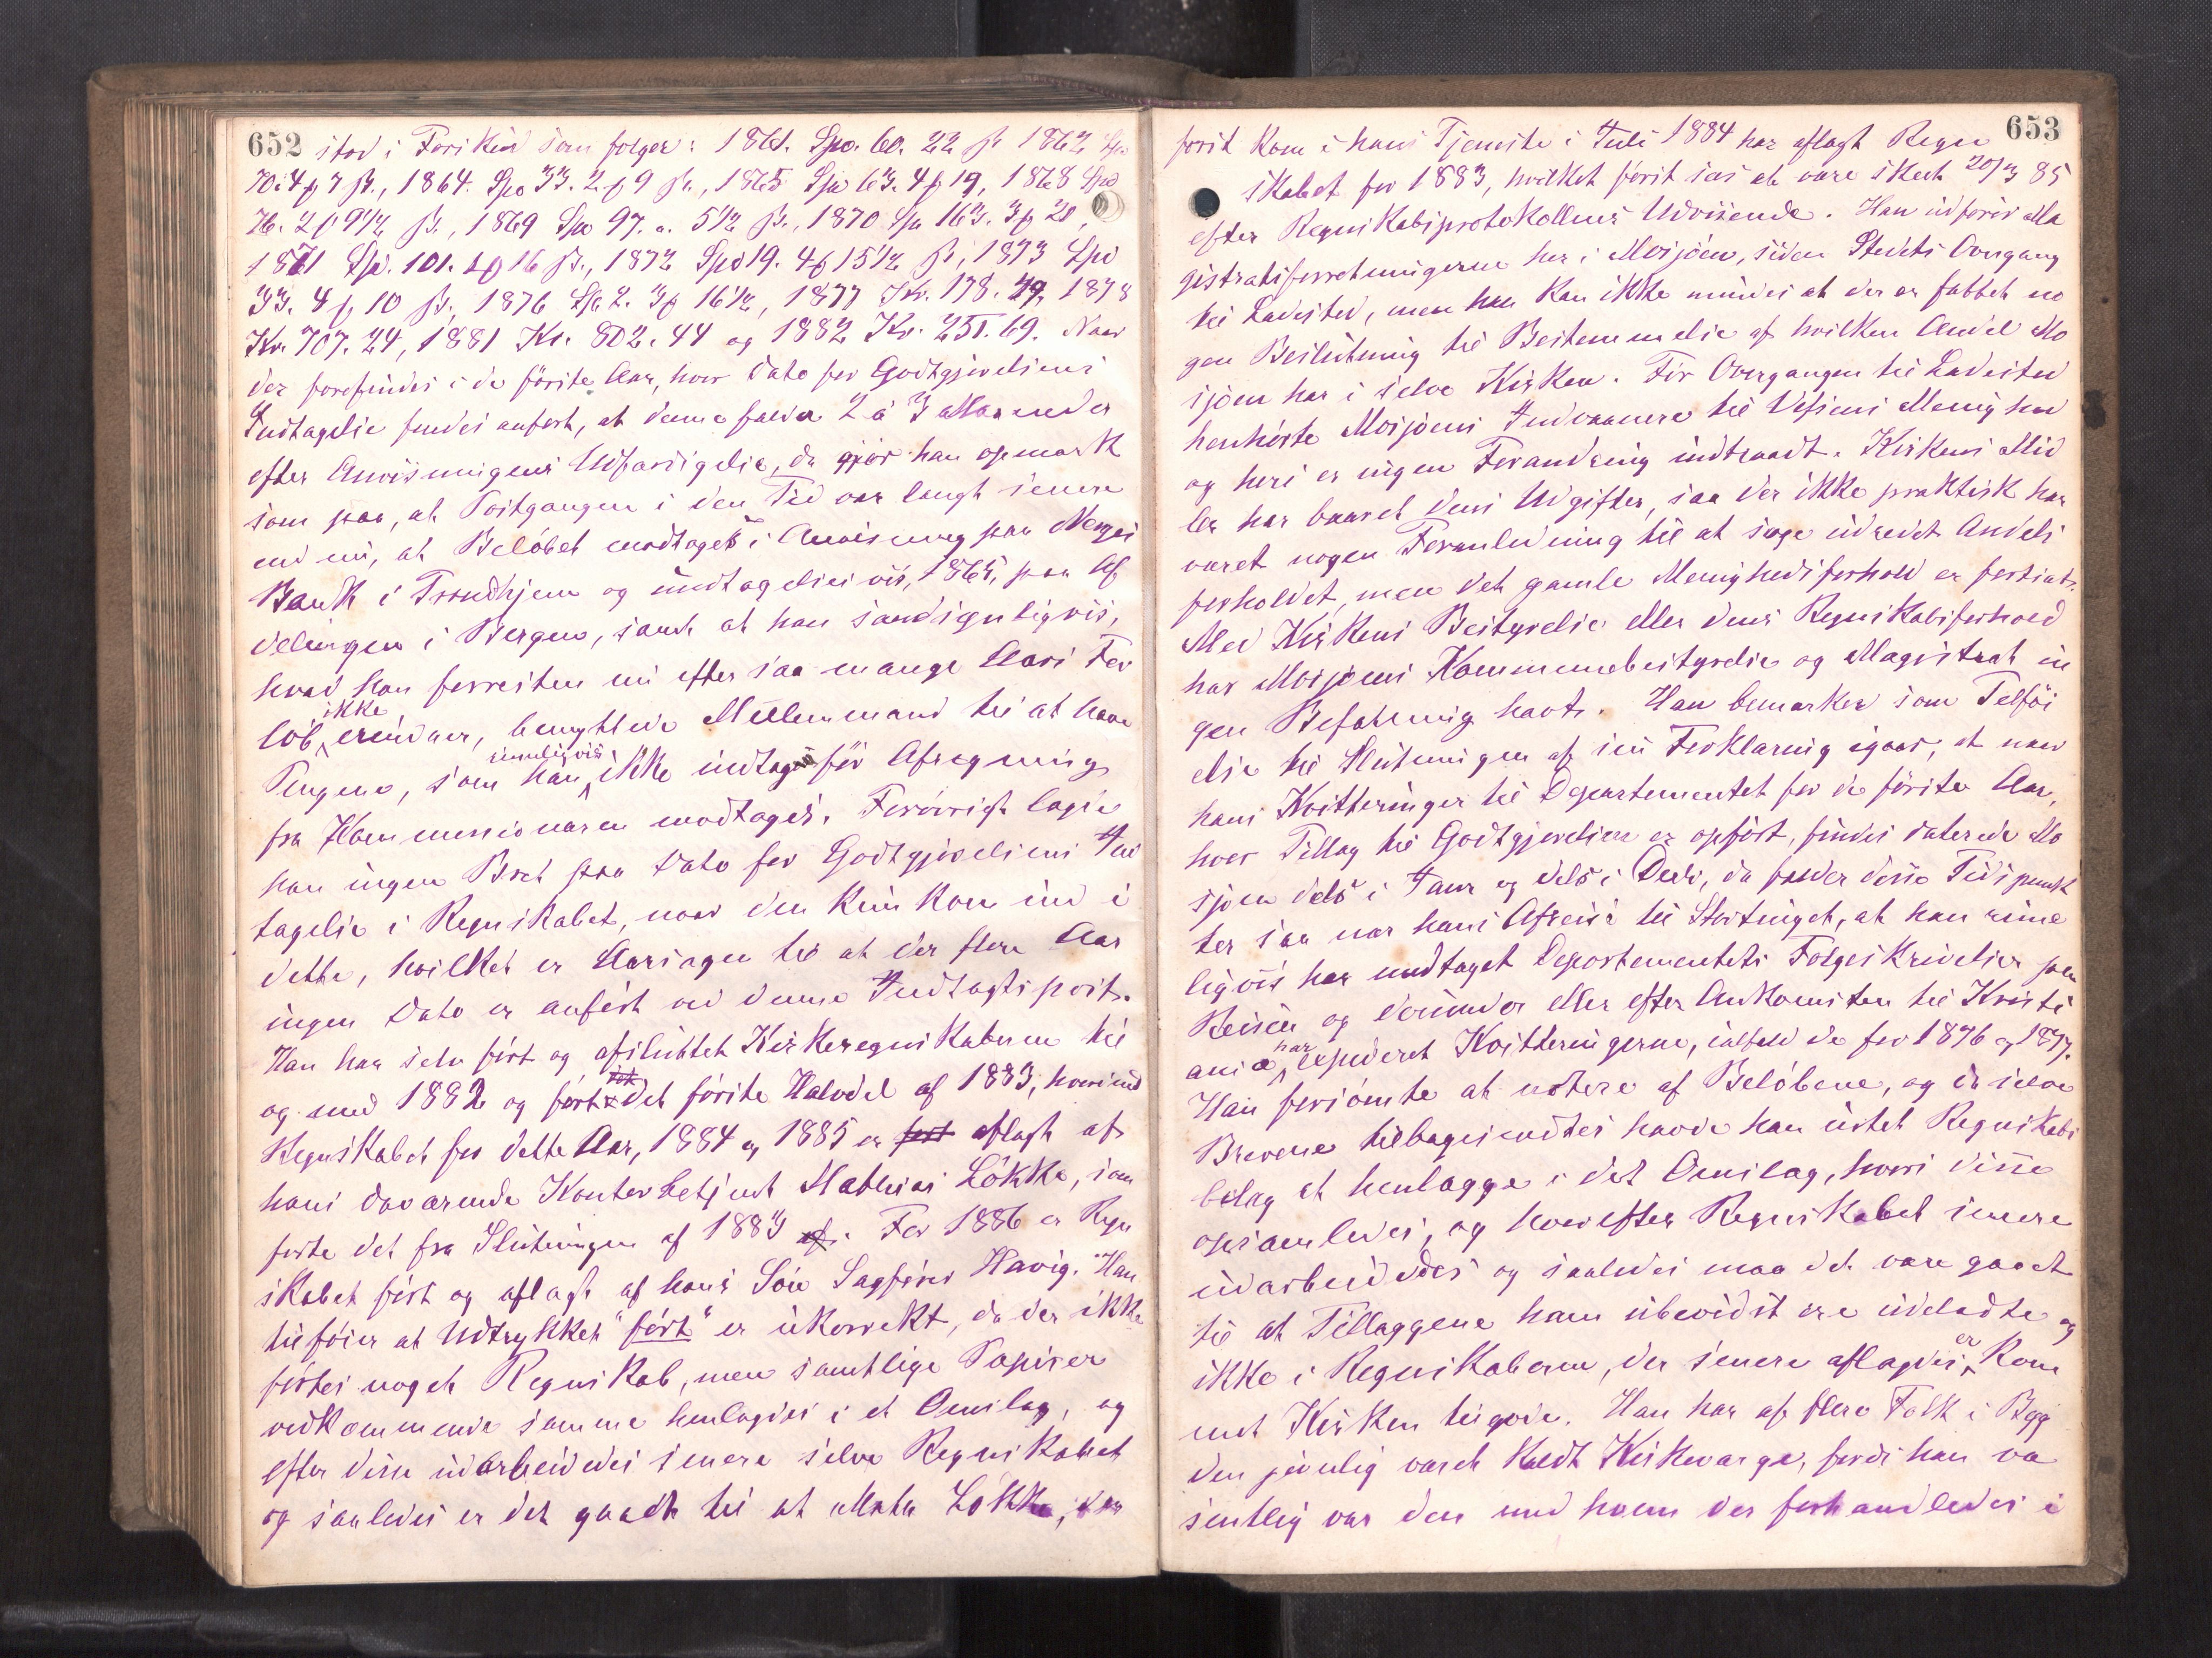 652
stod i Forskud som følger: 1861. Spd. 60. 22 ß 1862 Spd
70. 4 ƥ 7 ß., 1864. Spd 33. 2 ƥ 9 ß., 1865 Spd 63. 4 ƥ 19, 1868 Spd
76. 2 ƥ 9 1/2 ß., 1869 Spd 97. „ 5 1/2 ß., 1870 Spd 163. 3 ƥ 20,
1871 Spd. 101. 2 ƥ 16 ß., 1872 Spd 19. 4 ƥ 15 1/2 ß, 1873 Spd
33. 4 ƥ 10 ß, 1876 Spd 2. 3 ƥ 16 1/2, 1877 Kr. 178. 49, 1878
Kr. 707. 24, 1881 Kr. 802. 44 og 1882 Kr. 251. 69. Naar
der forefindes i de første Aar, hvor Dato for Godtgjørelsens
Indtagelse findes anført, at denne falder 2 á 3 Maaneder
efter Anvisningens Udfærdigelse, da gjør han opmærk
som paa, at Postgangen i den Tid var langt senere
end nu, at Beløbet modtoges i Anvisning paa Norges
Bank i Trondhjem og undtagelsesvis, 1865, paa Af
delingen i Bergen, samt at han sandsynligvis,
hvad han forresten nu efter saa mange Aars For
løb ikke erindrer, benyttede Mellemmand til at hæve
Pengene, som han rimeligvis ikke indtog før Afregning
fra Kommissionæren modtoges. Forøvrigt lagde
han ingen Vægt paa Dato for Godtgjørelsens Ind
tagelse i Regnskabet, naar den kun kom ind i
dette, hvilket er Aarsagen til at der flere Aar
ingen Dato er anført ved denne Indtægtspost.
Han har selv ført og afsluttet Kirkeregnskaberne til
og med 1882 og ført det første Halvdel af 1883, hvorimod
Regnskabet for dette Aar, 1884 og 1885 er aflagt af
hans daværende Kontorbetjent Mathias Løkke, som
førte det fra Slutningen af 1883. For 1886 er Regn
skabet ført og aflagt af hans Søn Sagfører Havig. Han
tilføier at Udtrykket "ført" er ukorrekt, da der ikke
førtes noget Regnskab, men samtlige Papirer
vedkommende samme henlagdes i et Omslag, og
efter disse udarbeidedes senere selve Regnskabet
og saaledes er det gaaet til at Maths Løkke, som
653
først kom i hans Tjeneste i Juli 1884 har aflagt Regn
skabet for 1883, hvilket først sees at være skedt 20/3 85
efter Regnskabsprotokollens Udvisende. Han udfører Ma
gistratsforretningerne her i Mosjøen, siden Stedets Overgang
til Ladested, men han kan ikke mindes at der er fattet no
gen Beslutning til Bestemmelse af hvilken Andel Mo
sjøen har i selve Kirken. Før Overgangen til Ladested
henhørte Mosjøens Indvaanere til Vefsens Menighed
og heri er ingen Forandring indtraadt. Kirkens Mid
ler har baaret dens Udgifter, saa der ikke praktisk har
været nogen Foranledning til at søge udredet Andels
forholdet, men det gamle Menighedsforhold er fortsat.
Med Kirkens Bestyrelse eller dens Regnskabsforhold
har Mosjøens Kommunebestyrelse og Magistrat in
gen Befatning havt. Han bemærker som Tilføi
else til Slutningen af sin Forklaring igaar, at naar
hans Kvitteringer til Departementet for de første Aar,
hvor Tillæg til Godtgjørelsen er opført, findes daterede Mo
sjøen dels i Janr og dels i Decbr, da falder disse Tidspunk
ter saa nær hans Afreise til Stortinget, at han rime
ligvis har modtaget Departementets Følgeskrivelser paa
Reisen og derunder eller efter Ankomsten til Kristi
ania har expederet Kvitteringerne, ialfald de for 1876 og 1877.
Han forsømte at notere af Beløbene, og da selve
Brevene tilbagesendtes havde han intet Regnskabs
bilag at henlægge i det Omslag, hvori disse
opsamledes, og hvorefter Regnskabet senere
udarbeidedes og saaledes maa det være gaaet
til at Tillæggene ham ubevidst ere udeladte og
ikke i Regnskaberne, der senere aflagdes, er kom
met Kirken tilgode. Han har af flere Folk i Byg
den jevnlig været kaldt Kirkeværge, fordi han væ
sentlig var den med hvem der forhandledes i